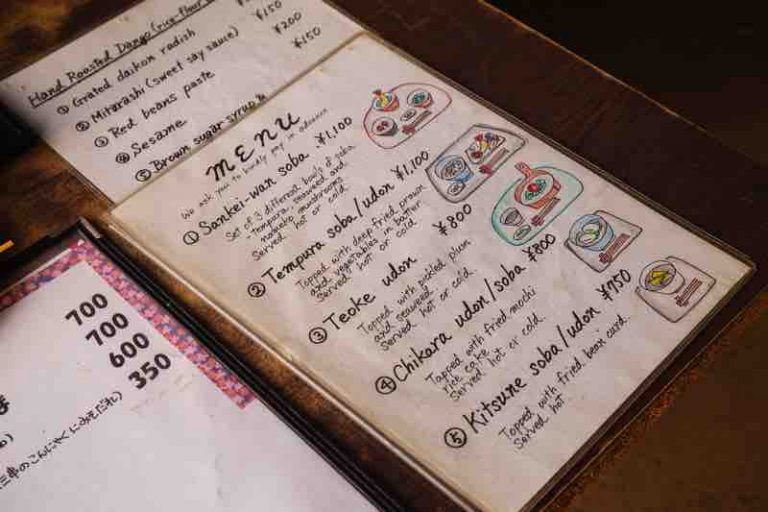 Hand Roasted Dango (rice-flour
¥150
① Grated daikon radish ¥200
② Mitarashi (sweet soy sauce) ¥150
③ Red beans paste
④ Sesame
⑤ Brown sugar syrup &
MENU
We ask you to kindly pay in advance
① Sankei-wan soba ¥1,100
Set of 3 different bowls of soba
・tempura, seaweed and
nameko mushrooms
Served hot or cold
② Tempura soba/udon ¥1,100
Topped with deep fried prawn
and vegetables in batter
Served hot or cold
③ Teoke udon ¥800
Topped with pickled plum
and seaweed
Served hot or cold
④ Chikara udon/soba ¥800
Tapped with fried mochi
rice cake
Served hot or cold
⑤ Kitsune soba/udon ¥750
Topped with fried bean card.
Served hot
700
700
600
350
三串のこんにゃくにみそだれ)